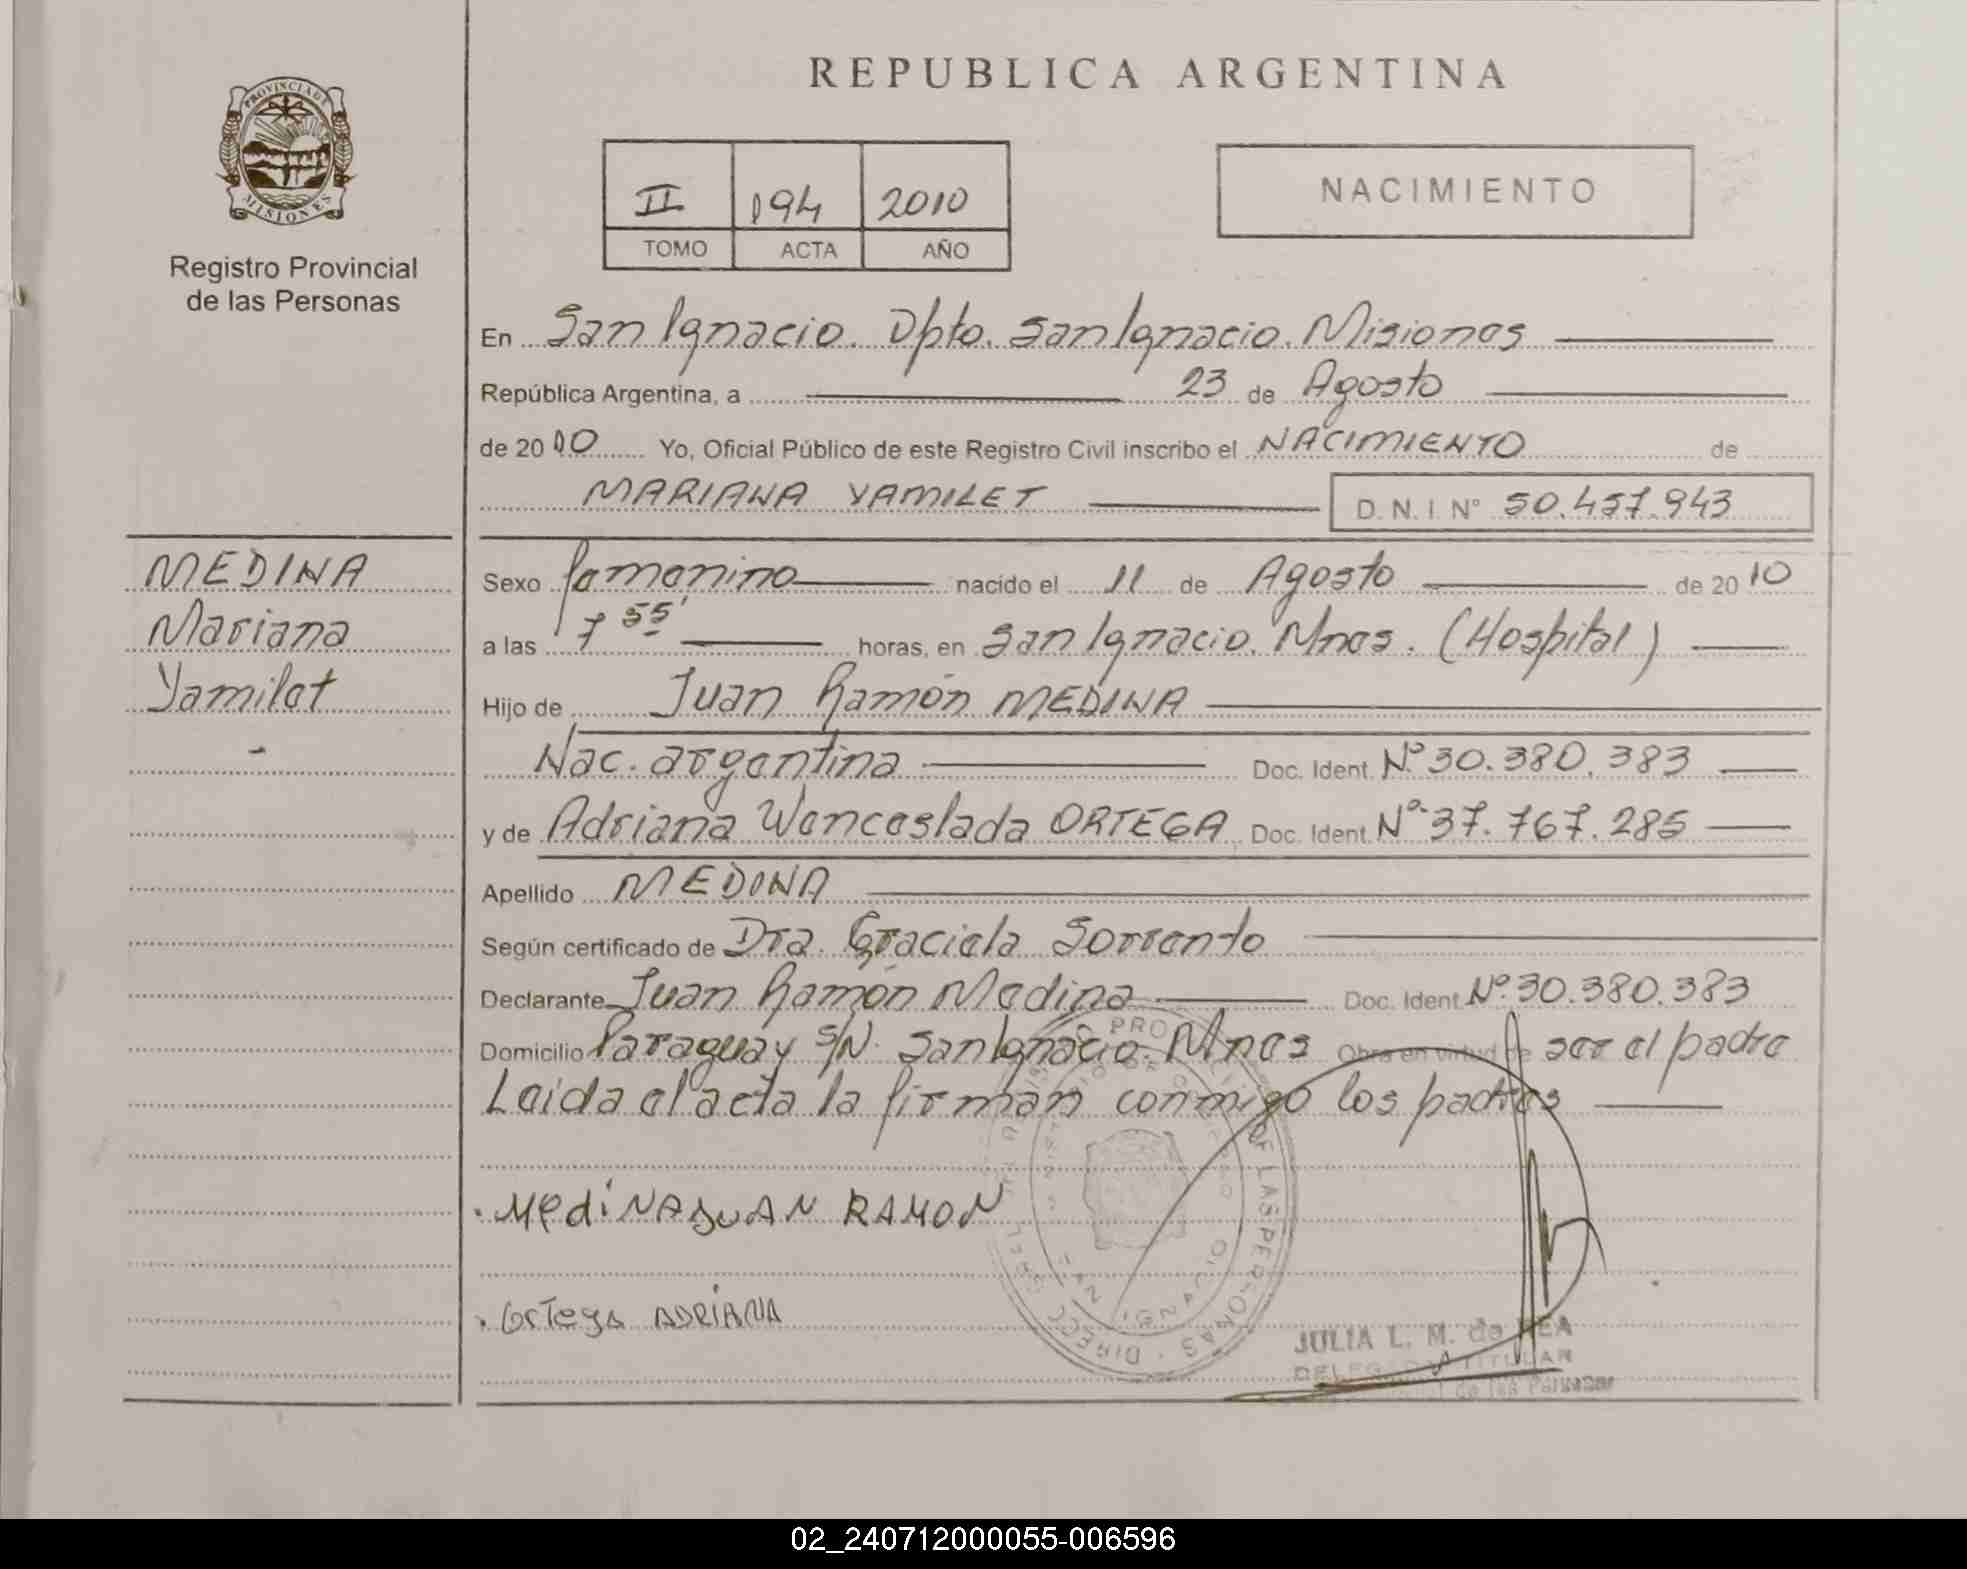 REPUBLICA ARGENTINA
PROVINCIA DE
MISIONES
Registro Provincial
de las Personas
II 194 2010
TOMO ACTA AÑO
NACIMIENTO
En San Ignacio. Dpto. San Ignacio. Misiones
República Argentina, a 23 de Agosto
de 2010 Yo, Oficial Público de este Registro Civil inscribo el NACIMIENTO de
MARIANA YAMILET D.N.I Nº 50.457.943
MEDINA
Mariana
Yamilet
Sexo femenino nacido el 11 de Agosto de 2010
a las 7 55' horas, en San Ignacio. Mnes. (Hospital)
Hijo de Juan Ramón MEDINA
Nac. argentina Doc. Ident. Nº 30.380.383
y de Adriana Wenceslada ORTEGA Doc. Ident. Nº 37.767.285
Apellido MEDINA
Según certificado de Dra. Graciela Sorrento
Declarante Juan Ramón Medina Doc. Ident. Nº 30.380.383
Domicilio Paraguay S/N. San Ignacio. Mnes Obra en virtud de ser el padre
Leida el acta la firman conmigo los padres
Medina JUAN RAMON
Ortega ADRIANA
JULIA L. M. de
DELEGADA TITULAR
de las Personas
02_240712000055-006596